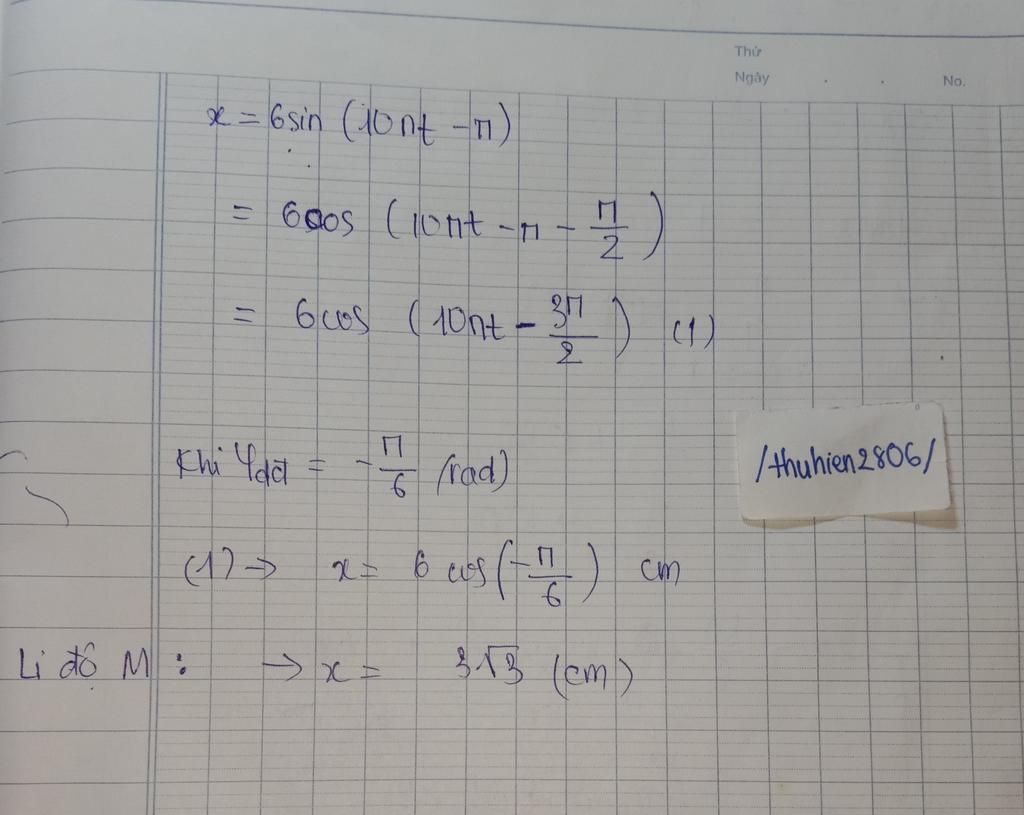 Thứ
Ngày . . No.
x = 6sin (10πt - π)
= 6cos (10πt - π - π/2)
= 6cos (10πt - 3π/2) (1)
Khi φdđ = -π/6 (rad)
/thuhien2806/
(1) → x = 6 cos(-π/6) cm
Li độ M : → x = 3√3 (cm)